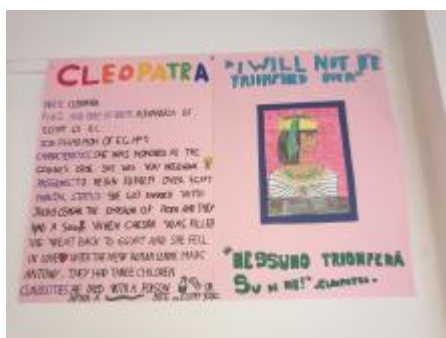 "CLEOPATRA"
NAME: CLEOPATRA
PLACE AND DATE OF BIRTH: ALEXANDRIA OF
EGYPT B.C.
JOB: PHARAOH OF EGYPT
CHARACTERISTICS: SHE WAS HONORED AS THE
GODDESS ISIDE. SHE WAS VERY
PASSIONS: TO REIGN EGYPT
MARITAL STATUS: SHE GOT MARRIED WITH
JULIUS CESAR THE OF ROME AND THEY
HAD A SON. WHEN CAESAR WAS KILLED
SHE WENT BACK TO EGYPT AND SHE FELL
IN LOVE WITH THE NEW ROMAN MARC
ANTONY. THEY HAD THREE CHILDREN
CURIOSITIES: DIED WITH A POISON OR
AFTER A BITE
"I WILL NOT BE
TRIUMPHED OVER"
"NESSUNO TRIONFERÀ
SU DI ME!" CLEOPATRA.